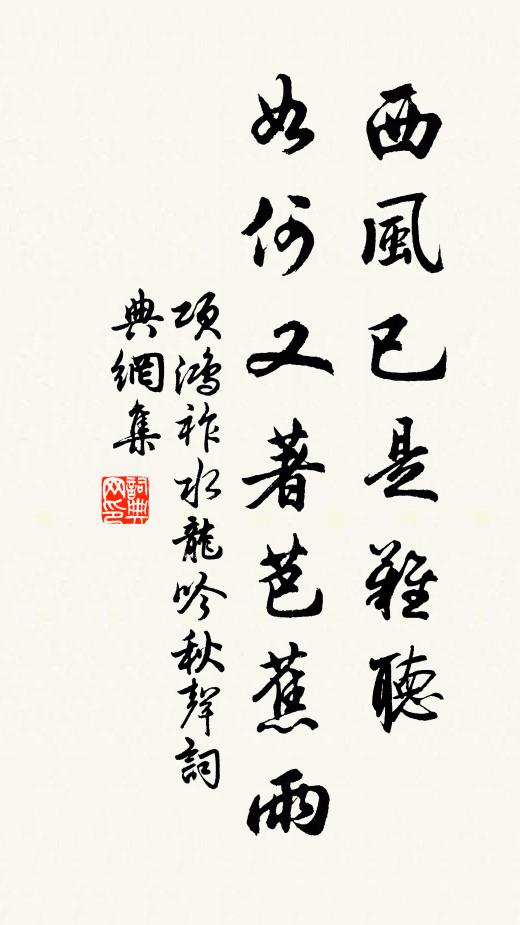 西風已是難聽
如何又著芭蕉雨
項鴻祚水龍吟秋聲詞
典網集
詞典网印